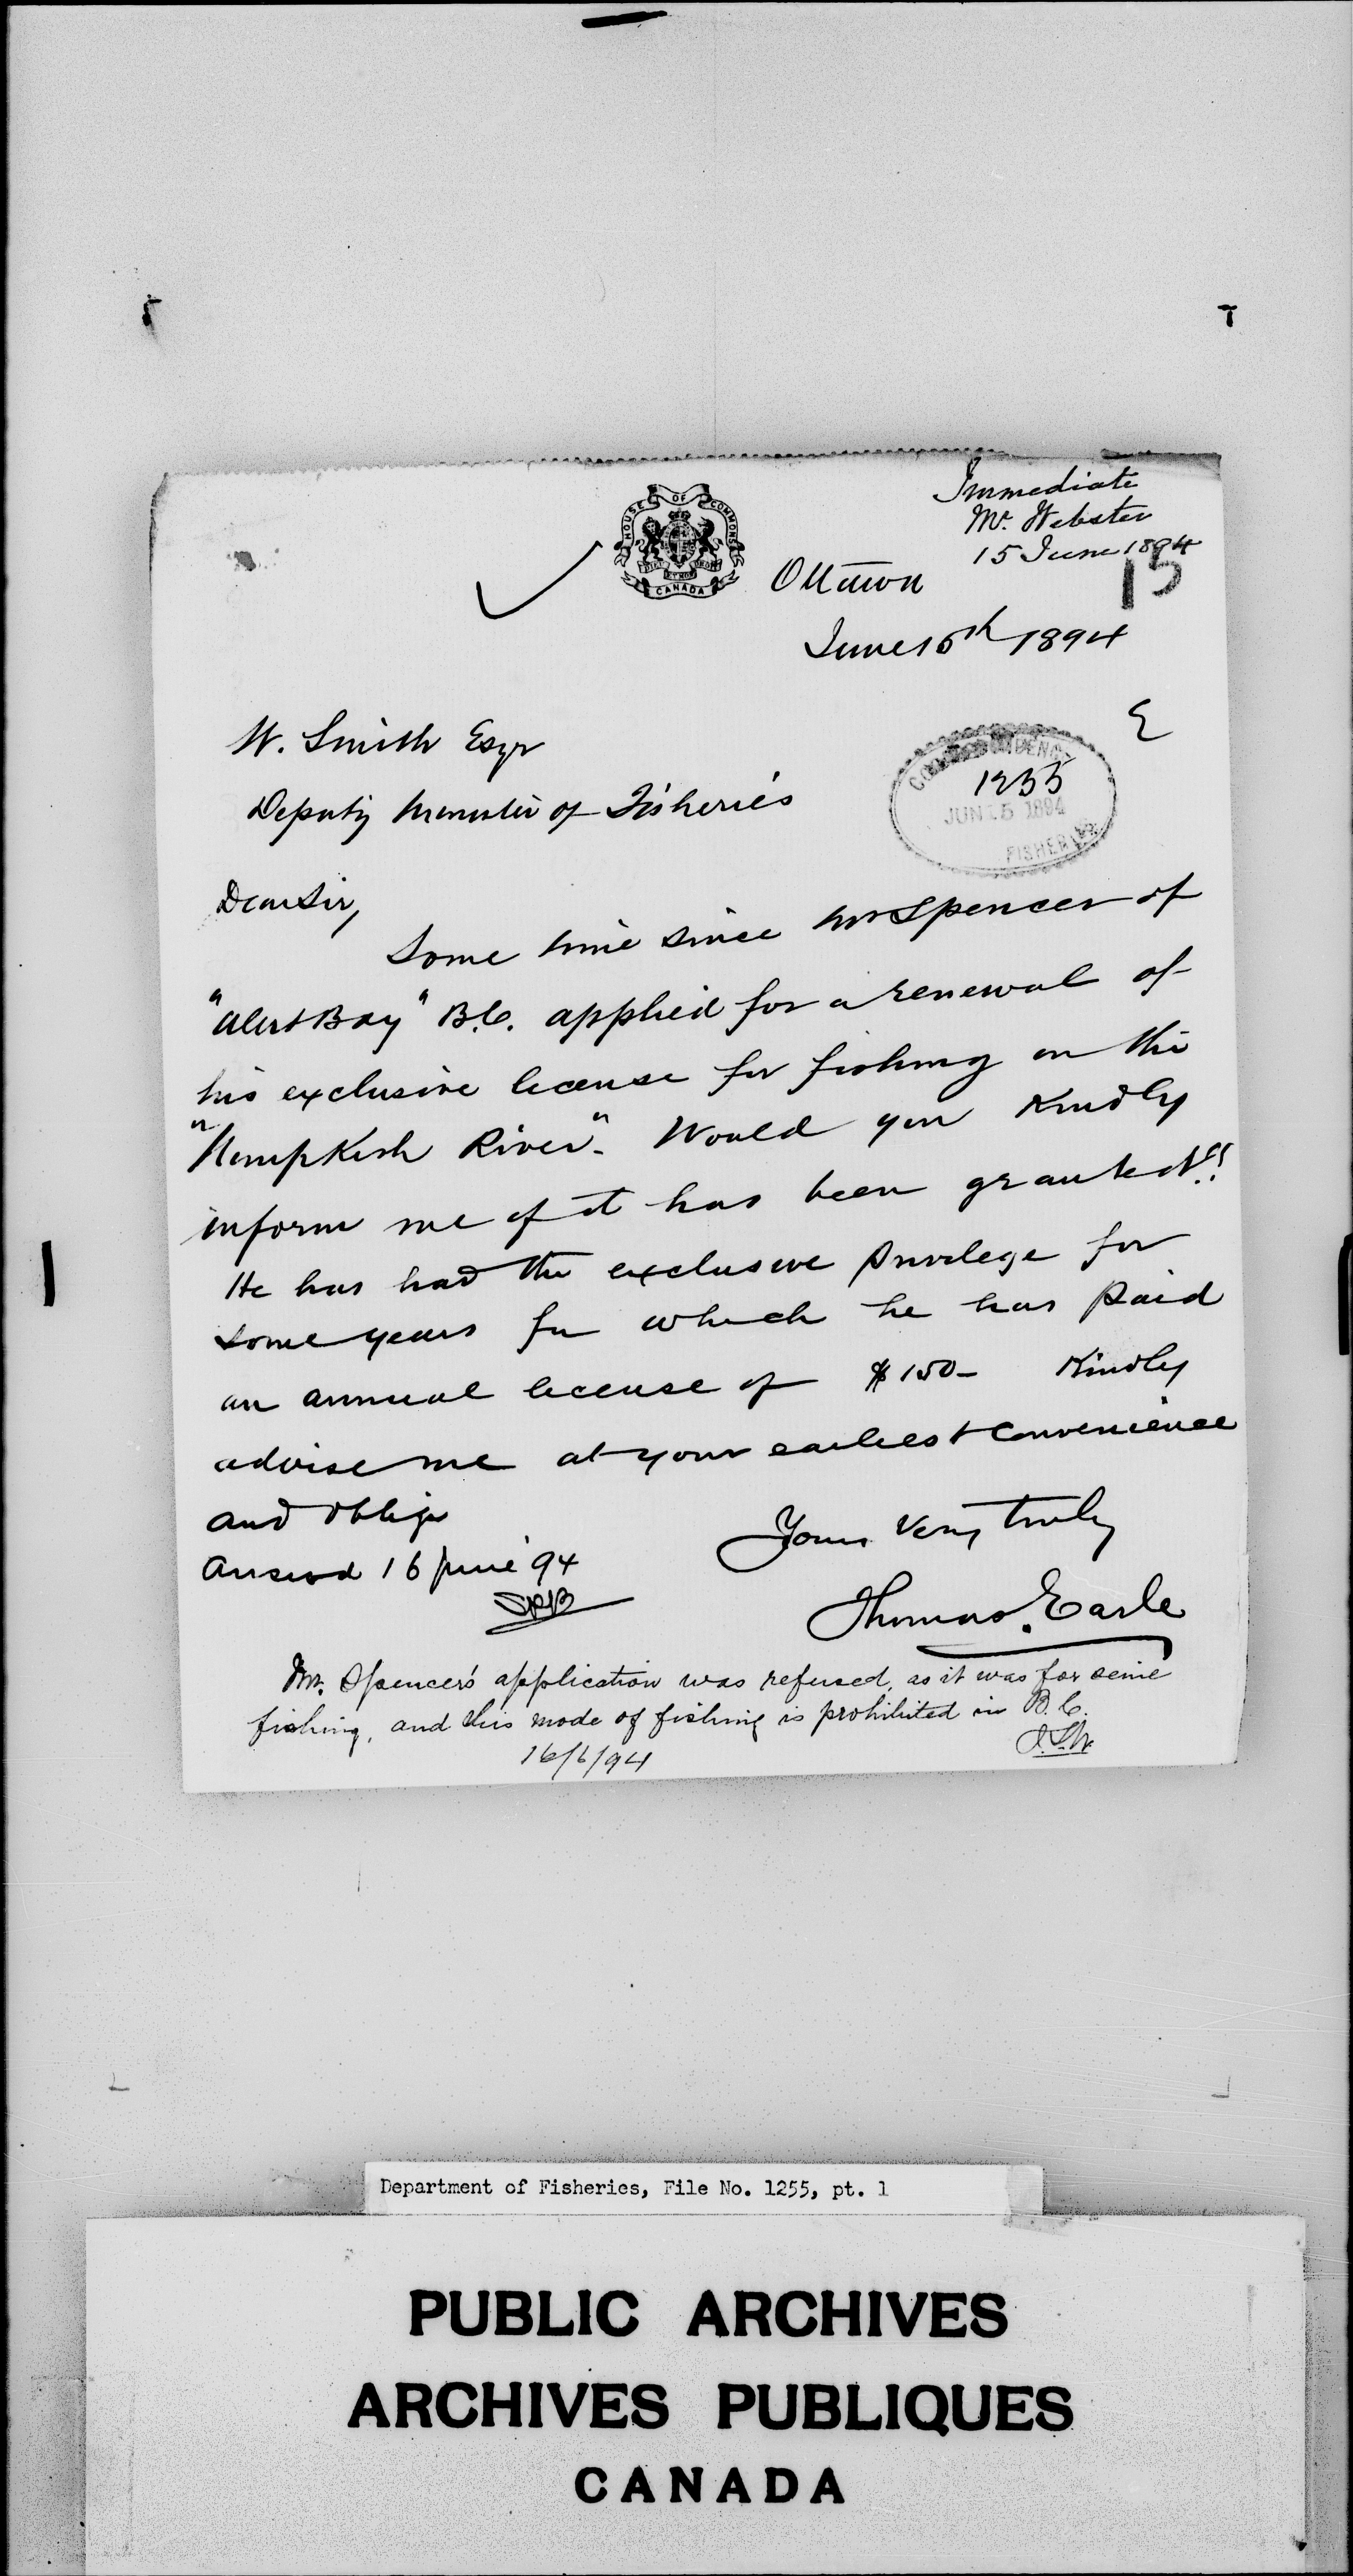 Immediate
Mr. Webster
15 June 1894
15
HOUSE OF COMMONS
CANADA
Ottawa
June 15th 1894
E
W. Smith Esqr
Deputy Minister of Fisheries
CORRESPONDENCE
1255
JUN 15 1894
FISHERIES
Dear Sir,
Some time since Mr Spencer of
"Alert Bay" B.C. applied for a renewal of
his exclusive license for fishing on the
"Nimpkish River". Would you Kindly
inform me if it has been granted!!
He has had the exclusive privilege for
some years for which he has paid
an annual license of $150- Kindly
advise me at your earliest convenience
and oblige
Yours Very truly
Thomas Earle
Answd 16 June '94
Mr. Spencer's application was refused, as it was for seine
fishing, and this mode of fishing is prohibited in B.C.
16/6/94
Department of Fisheries, File No. 1255, pt. 1
PUBLIC ARCHIVES
ARCHIVES PUBLIQUES
CANADA